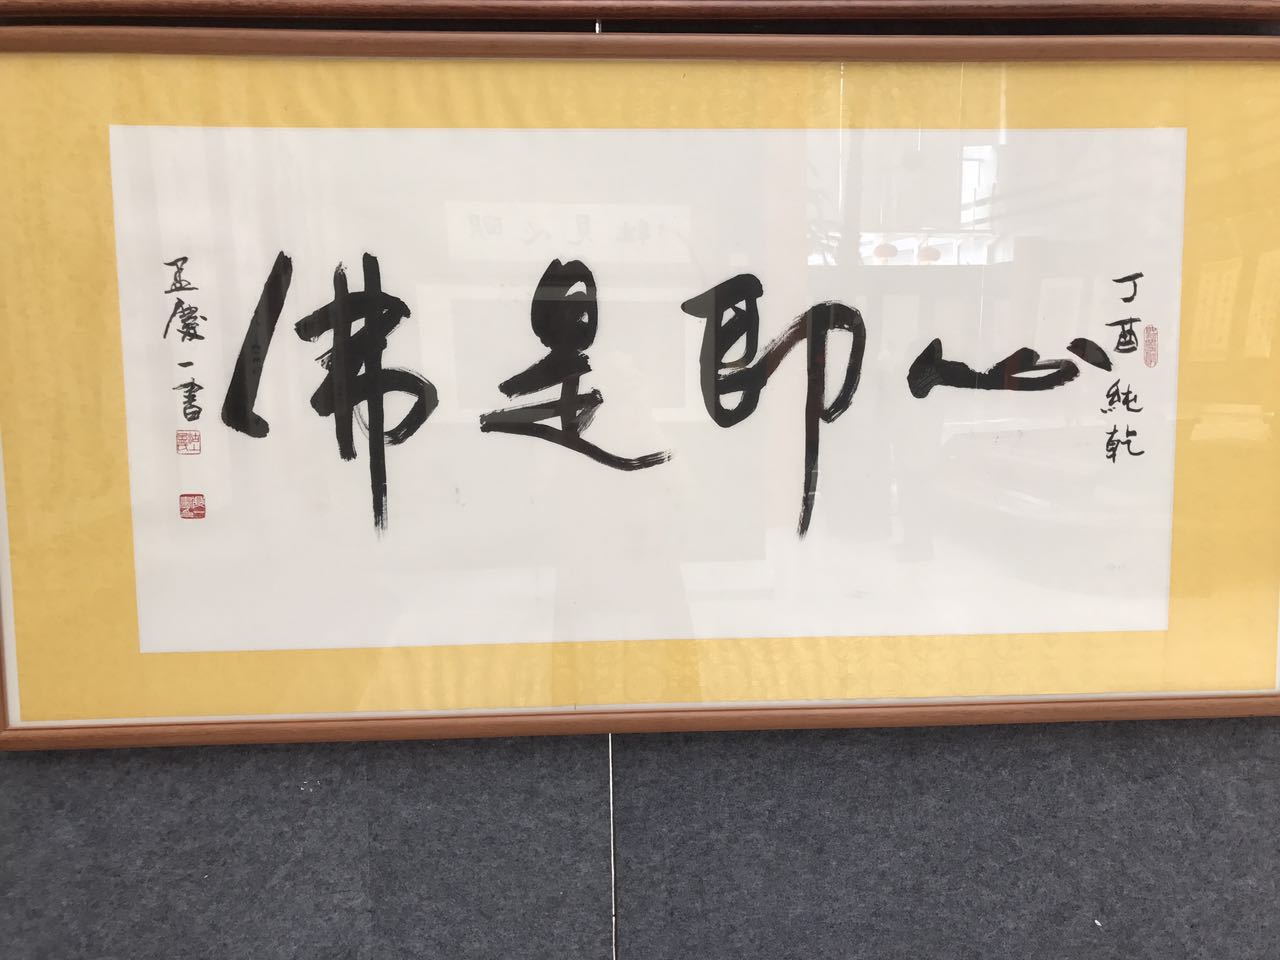 丁酉純乾
心即是佛
孟慶一書